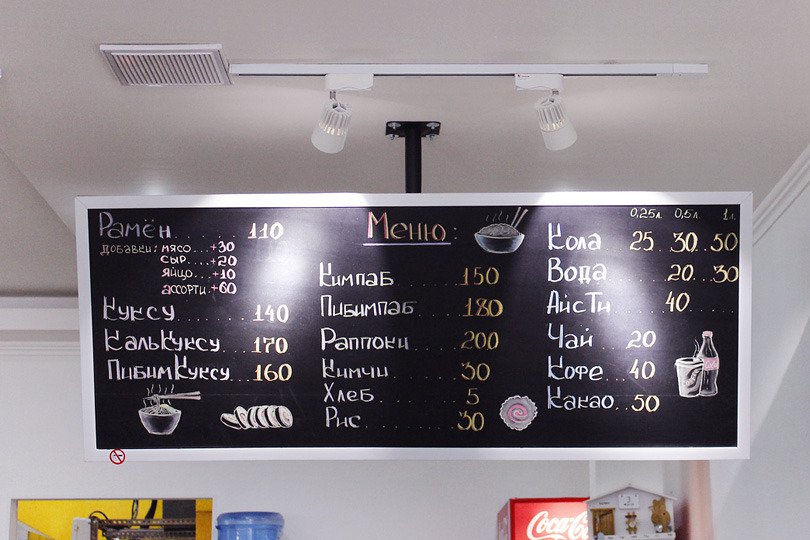 Меню:
Рамён 110
добавки: мясо...+30
сыр....+20
яйцо...+10
ассорти.+60
Куксу 140
КальКуксу 170
ПибимКуксу 160
Кимпаб 150
Пибимпаб 180
Раппоки 200
Кимчи 30
Хлеб 5
Рис 30
0,25л 0,5л. 1л
Кола 25 30 50
Вода 20 30
АйсТи 40
Чай 20
Кофе 40
Какао 50
Coca-Co